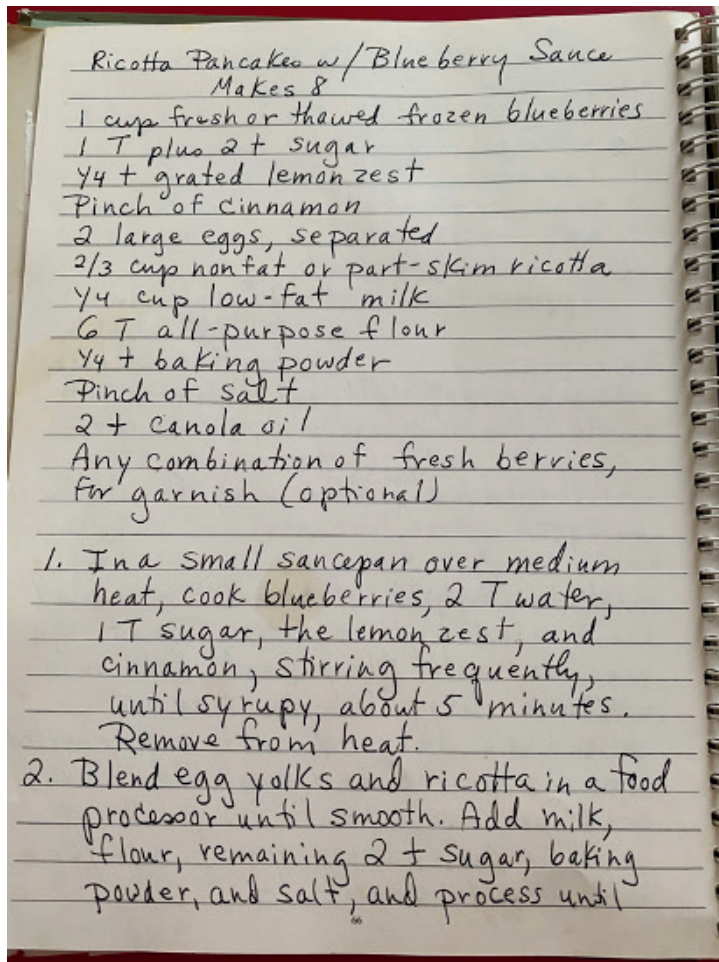 Ricotta Pancakes w/ Blueberry Sauce
Makes 8
1 cup fresh or thawed frozen blueberries
1 T plus 2 t sugar
1/4 t grated lemon zest
Pinch of cinnamon
2 large eggs, separated
2/3 cup nonfat or part-skim ricotta
1/4 cup low-fat milk
6 T all-purpose flour
1/4 t baking powder
Pinch of salt
2 t canola oil
Any combination of fresh berries,
for garnish (optional)
1. In a small saucepan over medium
heat, cook blueberries, 2 T water,
1 T sugar, the lemon zest, and
cinnamon, stirring frequently,
until syrupy, about 5 minutes.
Remove from heat.
2. Blend egg yolks and ricotta in a food
processor until smooth. Add milk,
flour, remaining 2 t sugar, baking
powder, and salt, and process until
66